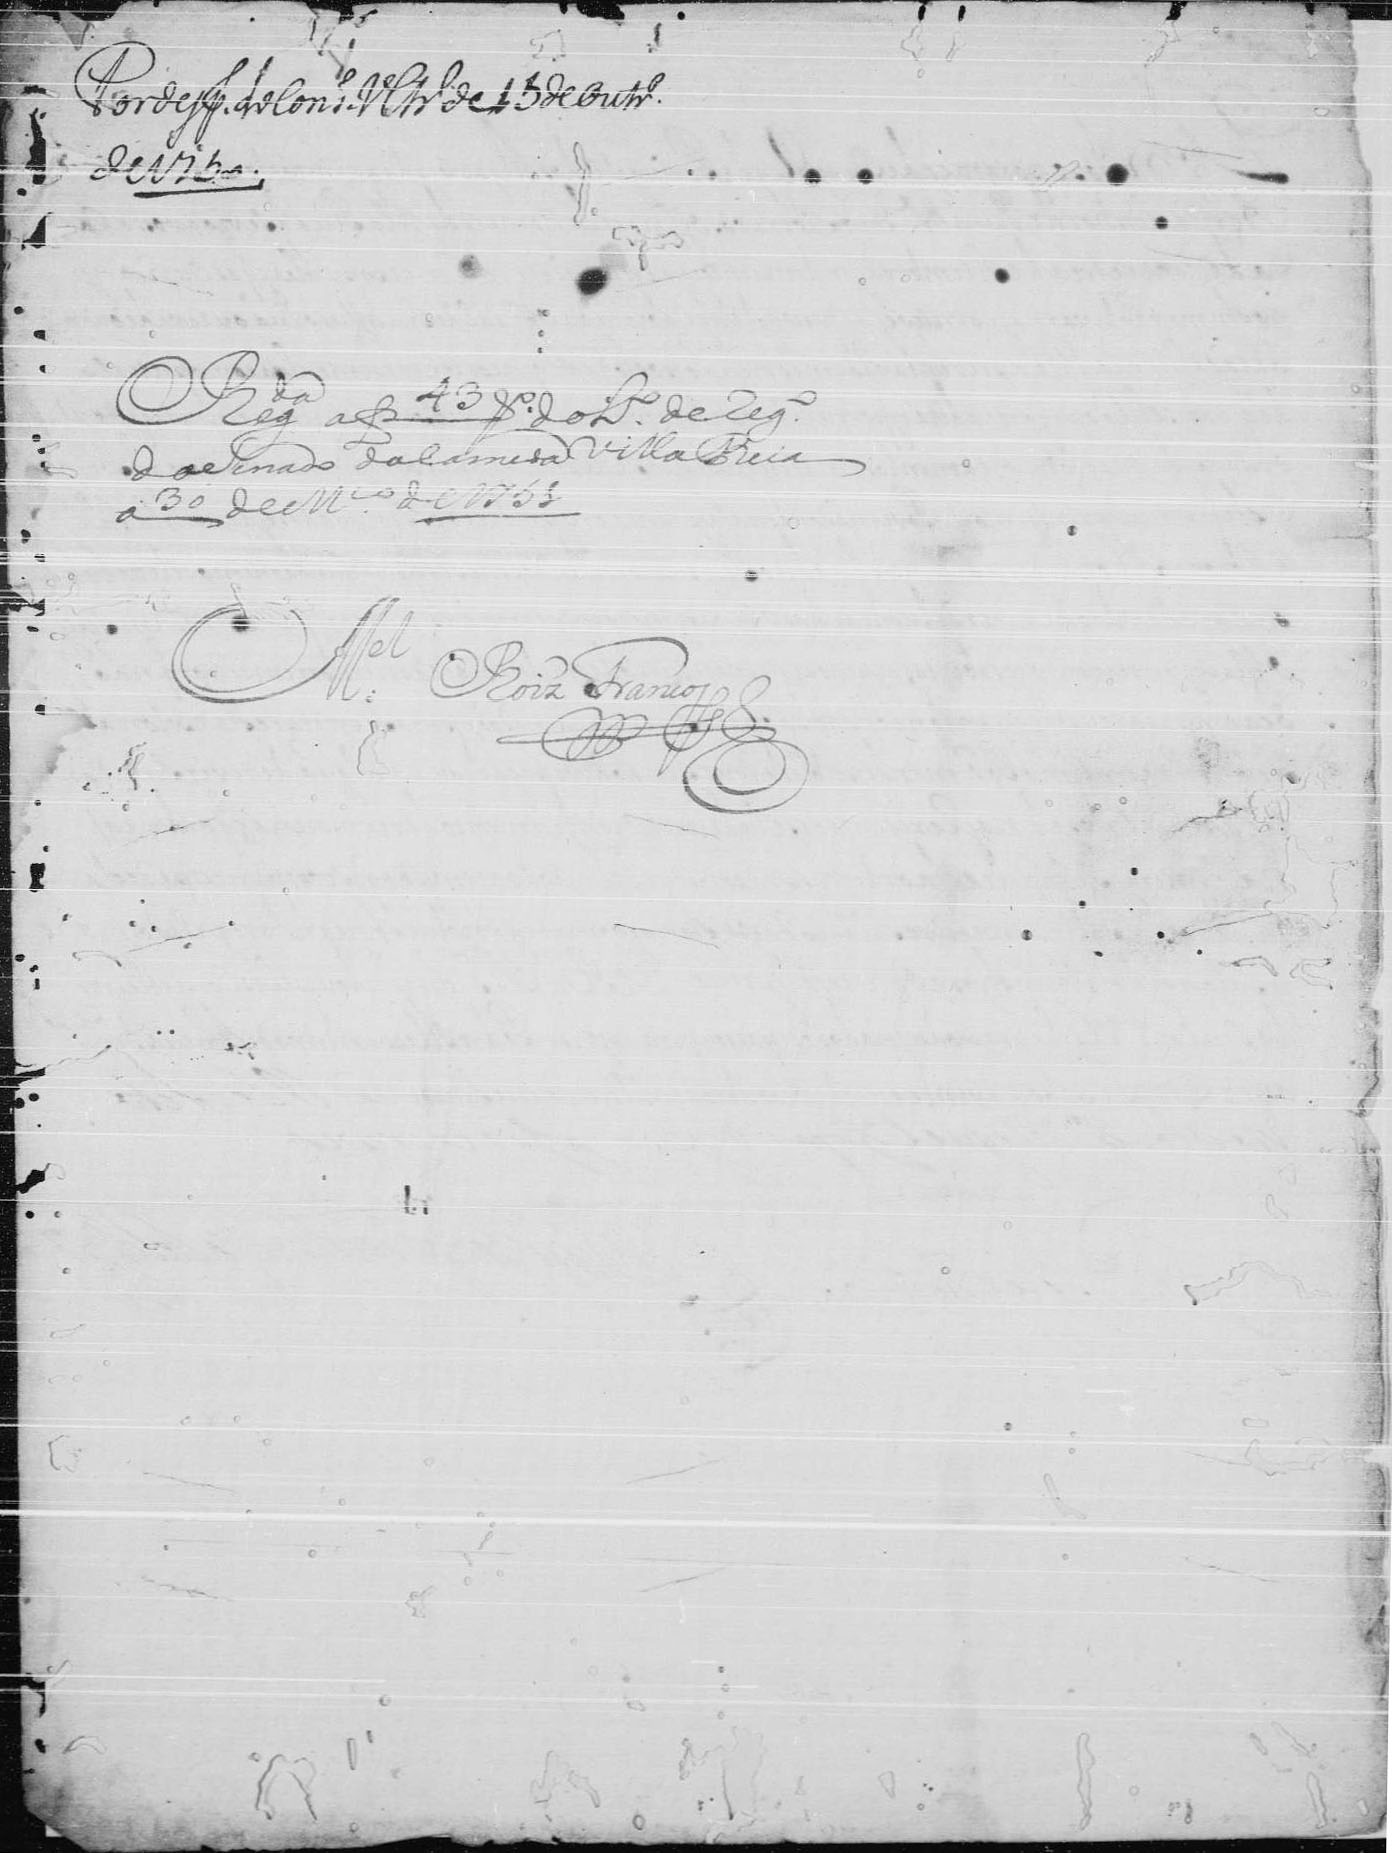 Por desp. do Cons.º Ultr.º de 15 de Outr.º
de 1750.
Reg.da a f 43 v.º do L.º de Reg.º
do Senado da Camera Villa Rica
a 30 de M.ço de 1751
M.el Roiz Franco